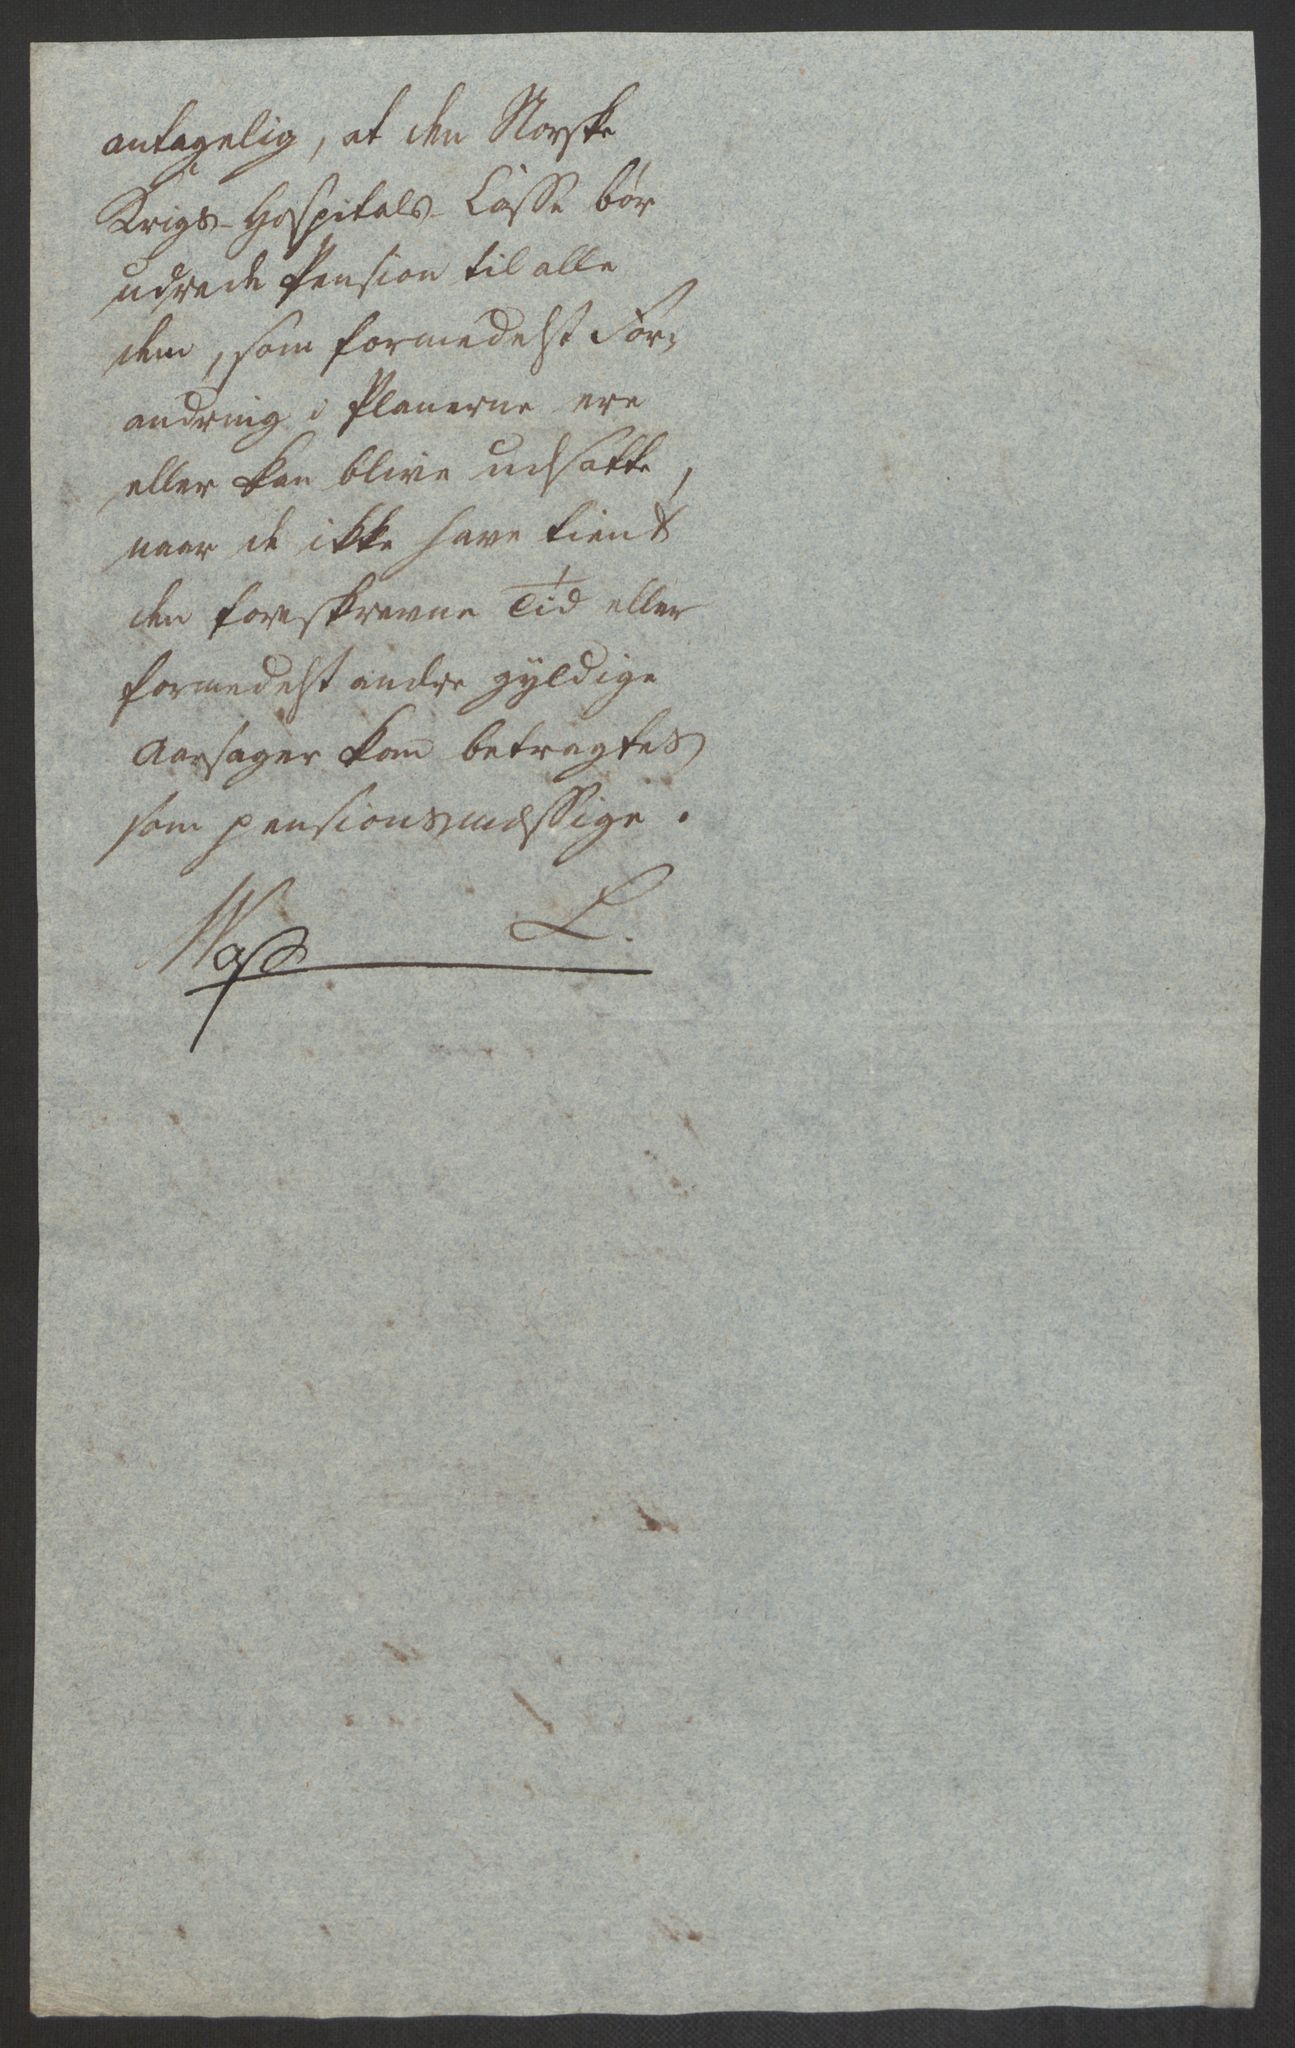 antagelig, at den Norske
Krigs-Hospitals-Casse bør
udrede Pension til alle
dem, som formedelst For-
andring i Planerne ere
eller kan blive udsatte,
naar de ikke have tient
den foreskrevne Tid eller
formedelst andre gyldige
Aarsager kan betragtes
som pensionsmæssige.
L.